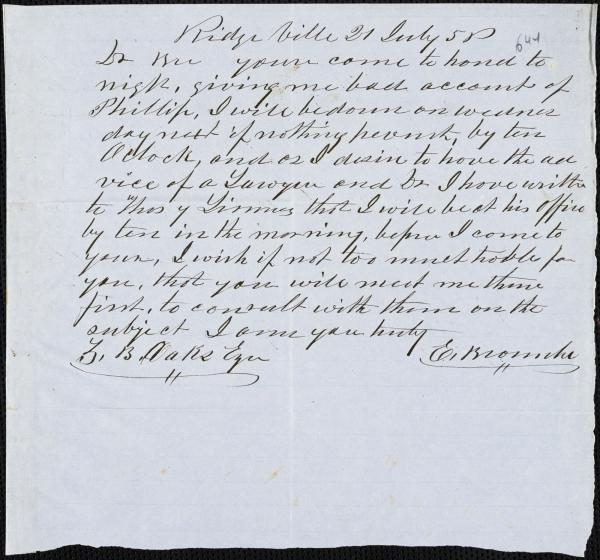 Ridge Ville 21 July 58
644
Dr Bre yours came to hand to
night, giving me bad account of
Phillip, I will be down on wednes
day next if nothing prevent, by ten
Oclock, and as I desire to have the ad
vice of a Lawyer and Dr I have written
to Thos Y Simmes that I will be at his office
by ten in the morning, before I come to
yours, I wish if not too much troble for
you, that you will meet me there
first, to consult with them on the
subject I am you truly
Z. B. Oaks Eqr
E.